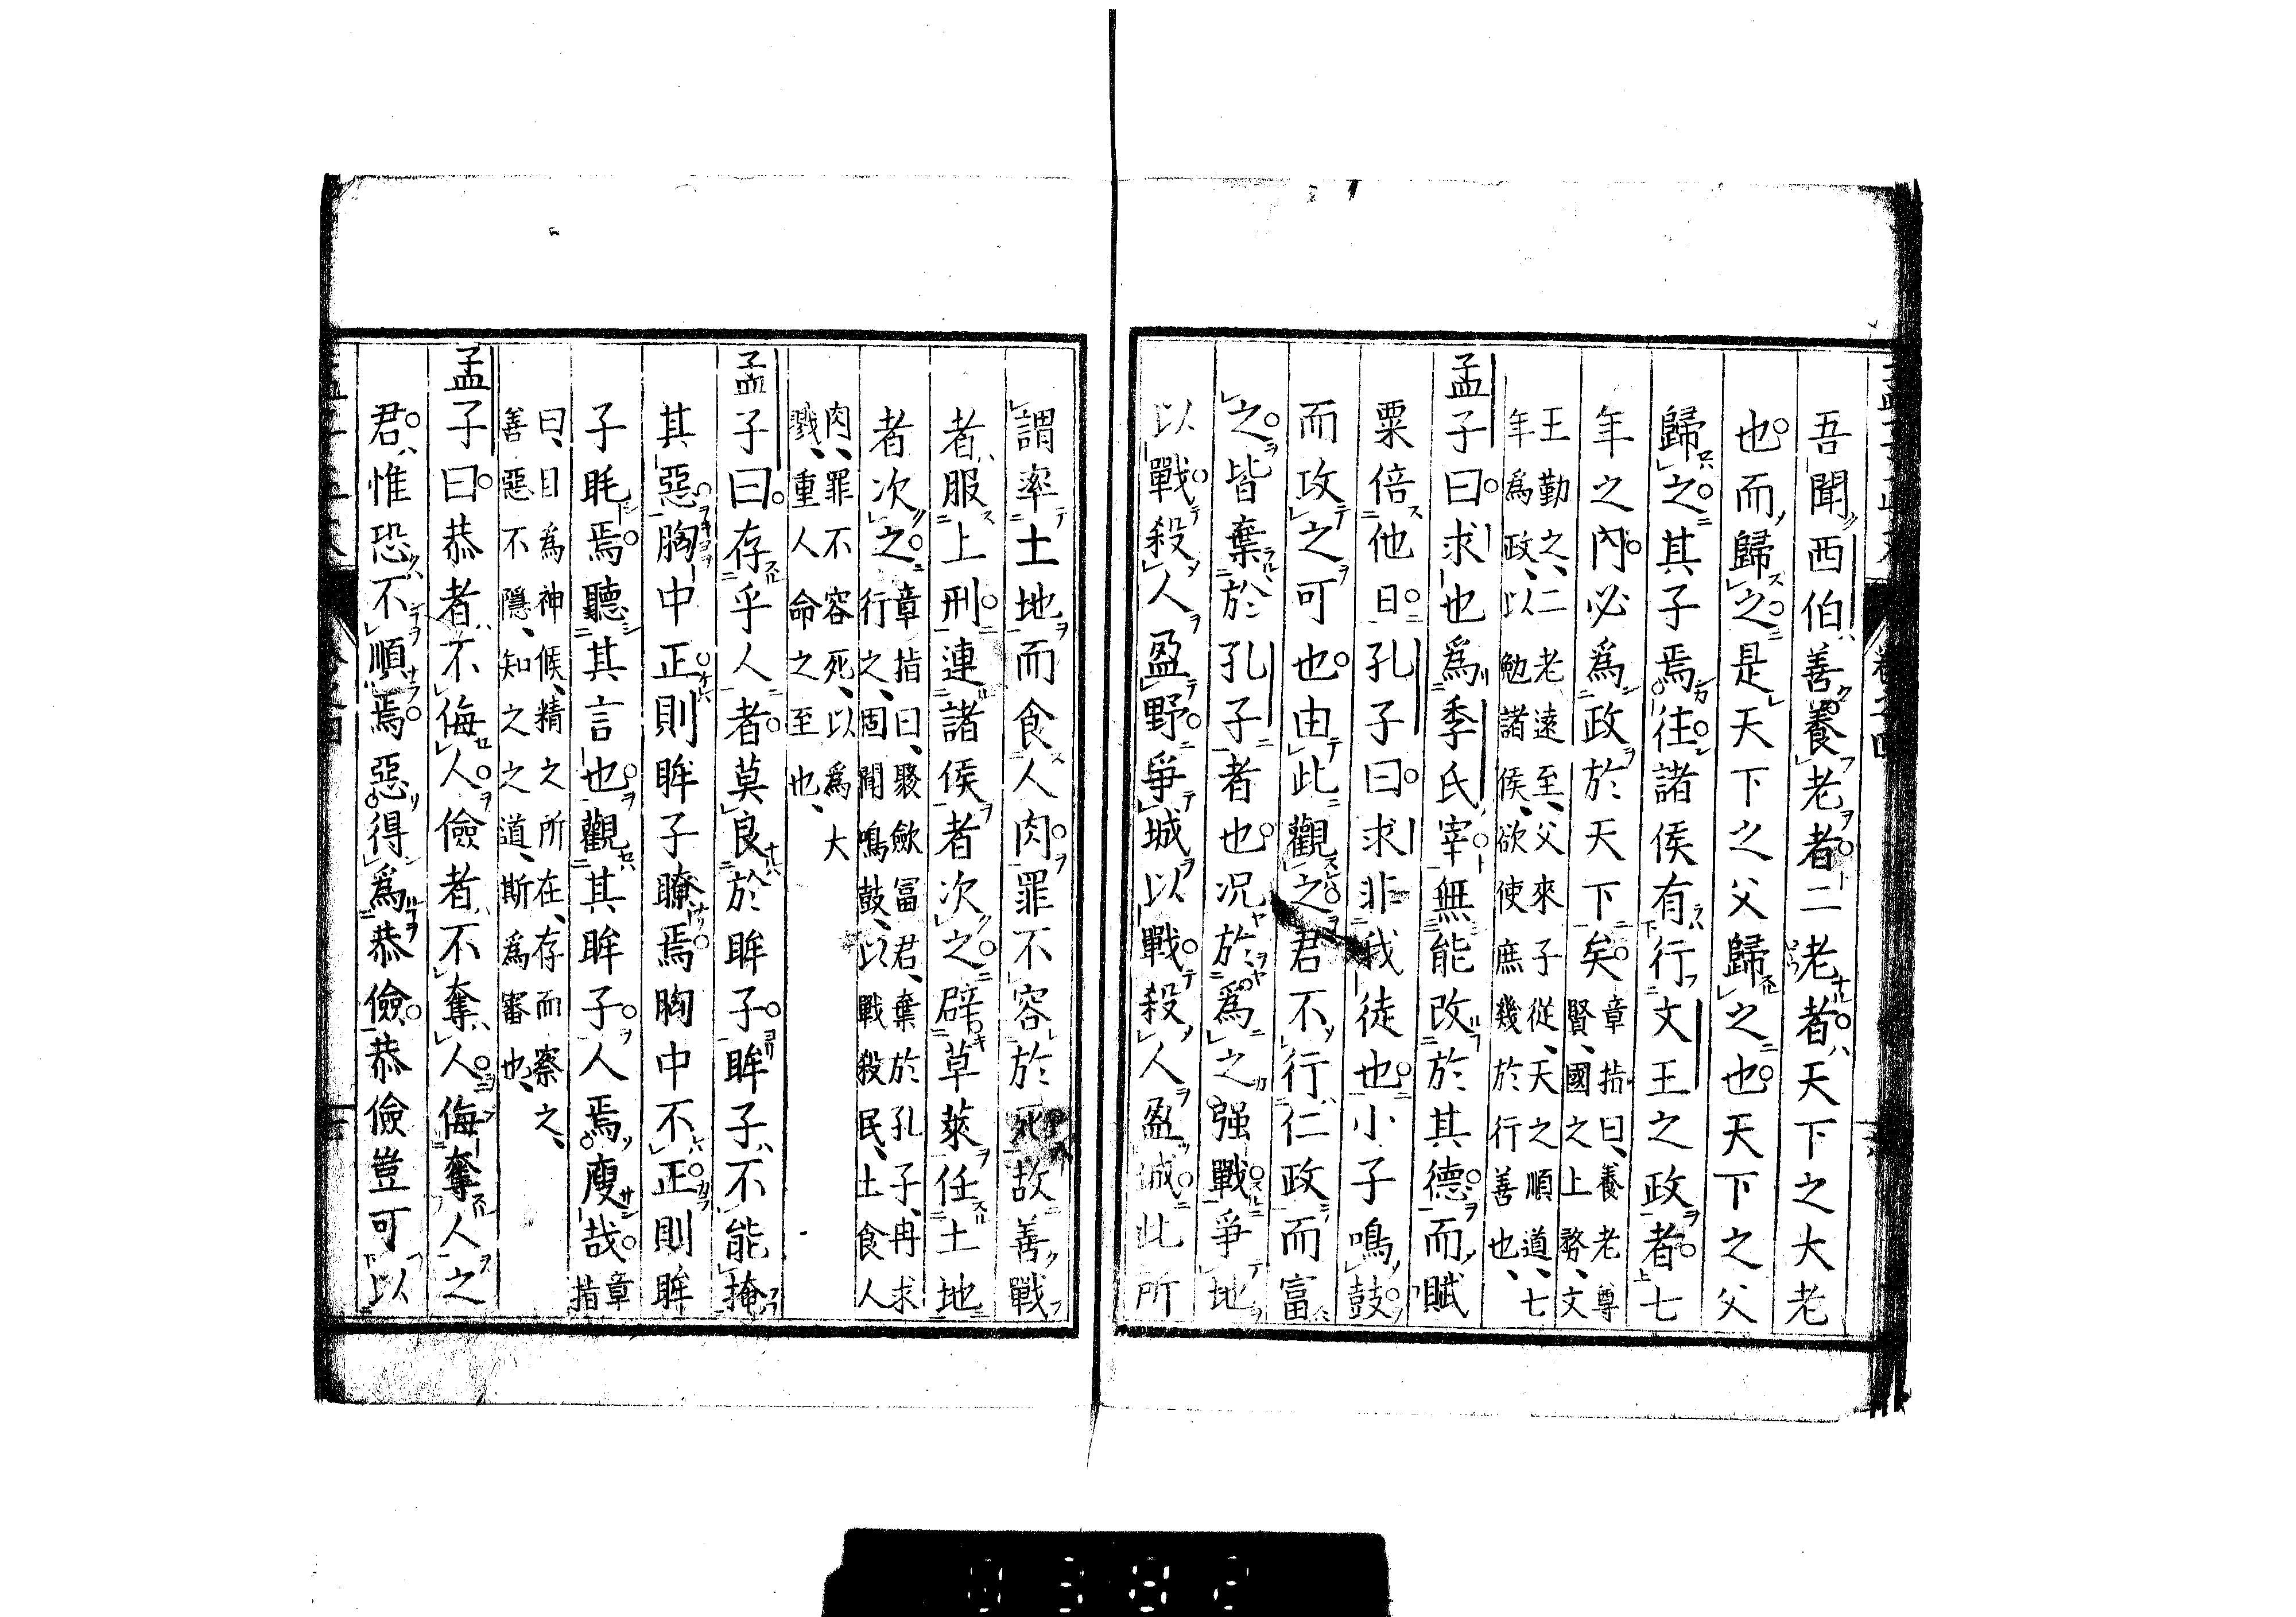 吾聞西伯善養老者二老者天下之大老
也而歸之是天下之父歸之也天下之父
歸之其子焉往諸侯有行文王之政者七
年之內必為政於天下矣章指曰、養老尊賢、國之上務、文
王勤之、二老遠至、父來子從、天之順道、七
年為政、以勉諸侯、欲使庶幾於行善也、
孟子曰求也為季氏宰無能改於其德而賦
粟倍他日孔子曰求非我徒也小子鳴鼓
而攻之可也由此觀之君不行仁政而富
之皆棄於孔子者也况於為之强戰爭地
以戰殺人盈野爭城以戰殺人盈城此所
謂率土地而食人肉罪不容於死故善戰
者服上刑連諸侯者次之辟草萊任土地
者次之章指曰、聚斂冨君、棄於孔子、冉求
行之、固聞鳴鼓、以戰殺民、土食人
肉、罪不容死、以為大
戮、重人命之至也、
孟子曰存乎人者莫良於眸子眸子不能掩
其惡胸中正則眸子瞭焉胸中不正則眸
子眊焉聽其言也觀其眸子人焉廋哉章指
曰、目為神候、精之所在、存而察之、
善惡不隱、知之之道、斯為審也、
孟子曰恭者不侮人儉者不奪人侮奪人之
君惟恐不順焉惡得為恭儉恭儉豈可以